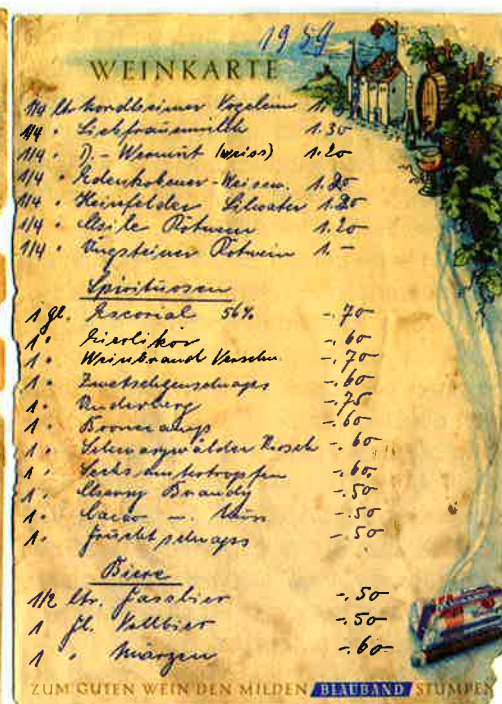 1959
WEINKARTE
1/4 ltr. Nordheimer Vogelein 1.
1/4 " Liebfrauenmilch 1.30
1/4 " D. - Wermut (weiss) 1.20
1/4 " Edenkobener - 1.20
1/4 " Steinfelder Silvaner 1.20
1/4 " Rotwein 1.20
1/4 " Ungsteiner Rotwein 1.-
Spirituosen
1 Gl. Escorial 56% -.70
1 " Eierlikör -.60
1 " Weinbrand Verschn. -.70
1 " Zwetschgenschnaps -.60
1 " Underberg -.75
1 " Boonecamp -.60
1 " Schwarzwälder Kirsch -.60
1 " Sechsämtertropfen -.60
1 " Cherry Brandy -.50
1 " Cacao - -.50
1 " Fruchtschnaps -.50
Biere
1/2 ltr. Fassbier -.50
1 Fl. Vollbier -.50
1 " Märzen -.60
ZUM GUTEN WEIN DEN MILDEN BLAUBAND STUMPEN